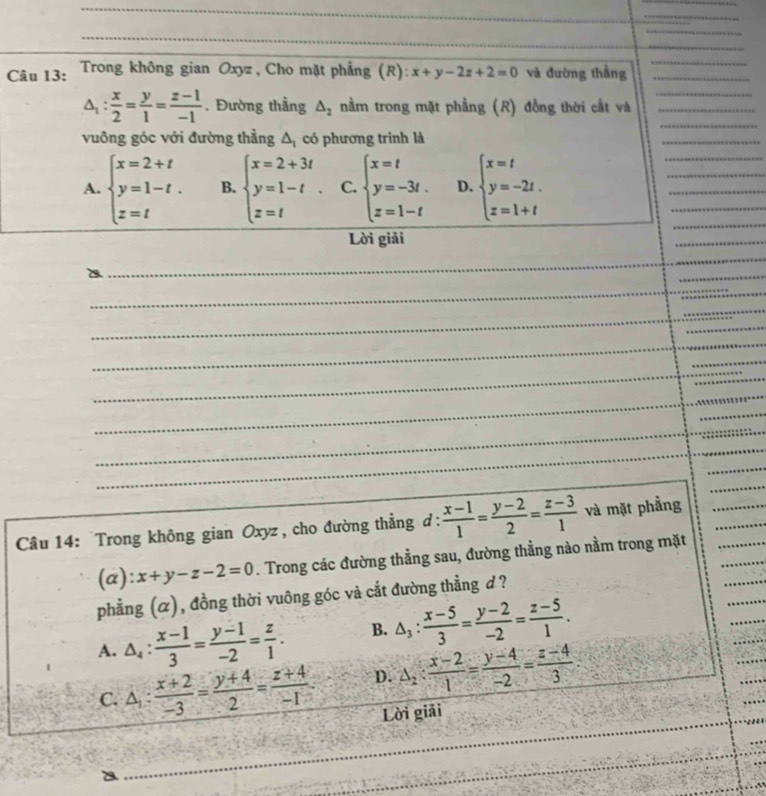 Câu 13: Trong không gian Oxyz , Cho mặt phẳng (R): x + y − 2z + 2 = 0 và đường thẳng
Δ₁ : x/2 = y/1 = (z−1)/(−1) . Đường thẳng Δ₂ nằm trong mặt phẳng (R) đồng thời cắt và
vuông góc với đường thẳng Δ₁ có phương trình là
A. { x = 2 + t; y = 1 − t; z = t . B. { x = 2 + 3t; y = 1 − t; z = t . C. { x = t; y = −3t; z = 1 − t . D. { x = t; y = −2t; z = 1 + t .
Lời giải
Câu 14: Trong không gian Oxyz , cho đường thẳng d : (x−1)/1 = (y−2)/2 = (z−3)/1 và mặt phẳng
(α): x + y − z − 2 = 0 . Trong các đường thẳng sau, đường thẳng nào nằm trong mặt
phẳng (α), đồng thời vuông góc và cắt đường thẳng d ?
A. Δ₄ : (x−1)/3 = (y−1)/(−2) = z/1 . B. Δ₃ : (x−5)/3 = (y−2)/(−2) = (z−5)/1 .
C. Δ₁ : (x+2)/(−3) = (y+4)/2 = (z+4)/(−1) . D. Δ₂ : (x−2)/1 = (y−4)/(−2) = (z−4)/3 .
Lời giải